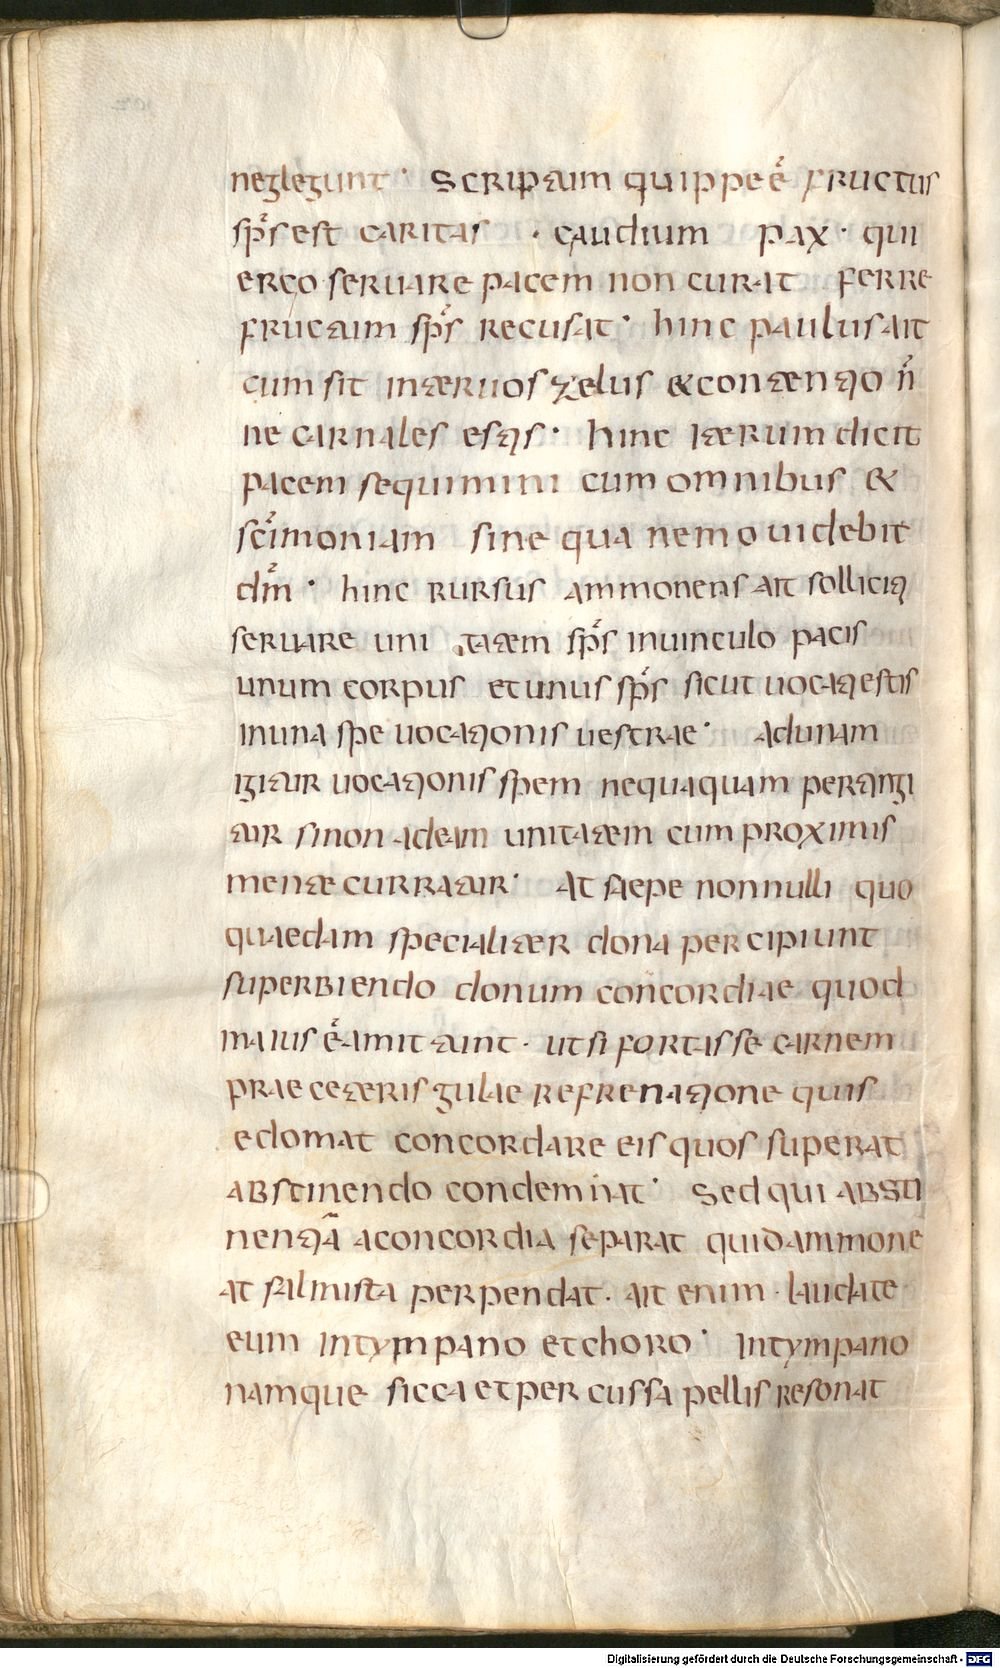 neglegunt · Scriptum quippe ē fructus
sp̄s est caritas · gaudium pax · qui
ergo servare pacem non curat ferre
fructum sp̄s recusat · hinc paulus ait
cum sit inter vos zelus & contentio n̄
ne carnales estis · hinc iterum dicit
pacem sequimini cum omnibus &
sc̄imoniam sine qua nemo videbit
dm̄ · hinc rursus ammonens ait solliciti
servare uni tatem sp̄s in vinculo pacis
unum corpus et unus sp̄s sicut vocati estis
in una spe vocationis vestrae · ad unam
igitur vocationis spem nequaquam pertingi
tur si non ad eam unitatem cum proximis
mente curratur · At saepe nonnulli quo
quaedam specialiter dona percipiunt
superbiendo donum concordiae quod
maius ē amittunt · ut si fortasse carnem
prae ceteris gulae refrenatione quis
edomat concordare eis quos superat
abstinendo condemnat · Sed qui absti
nentiā a concordia separat quid ammone
at salmista perpendat · ait enim · laudate
eum in tympano et choro · in tympano
namque sicca et percussa pellis resonat
Digitalisierung gefördert durch die Deutsche Forschungsgemeinschaft - DFG